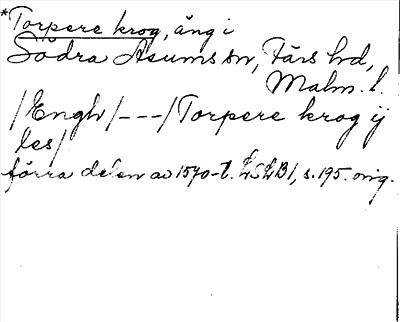 *Torpere krog, äng i
Södra Åsums sn, Färs hd,
Malm. l.
/Engh/---/Torpere krog ij
les/
förra delen av 1570-t. LSLB1, s.195. orig.